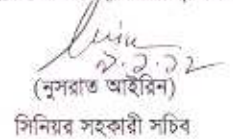 ২.১.১২
(নুসরাত আইরিন)
সিনিয়র সহকারী সচিব